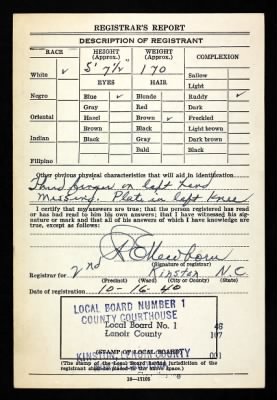 REGISTRAR'S REPORT
DESCRIPTION OF REGISTRANT
RACE HEIGHT (Approx.) WEIGHT (Approx.) COMPLEXION
White ✓ 5' 7½" 170 Sallow
EYES HAIR Light
Negro Blue ✓ Blonde Ruddy ✓
Gray Red Dark
Oriental Hazel Brown ✓ Freckled
Brown Black Light brown
Indian Black Gray Dark brown
Bald Black
Filipino
Other obvious physical characteristics that will aid in identification
Third finger on left hand
missing. Plate in left knee
I certify that my answers are true; that the person registered has read
or has had read to him his own answers; that I have witnessed his signa-
ture or mark and that all of his answers of which I have knowledge are
true, except as follows:
(Signature of registrar)
Registrar for 2nd Kinston N.C.
(Precinct) (Ward) (City or County) (State)
Date of registration 10-16-40
LOCAL BOARD NUMBER 1
COUNTY COURTHOUSE
Local Board No. 1 46
Lenoir County 107
KINSTON, LENOIR COUNTY 001
(STAMP OF LOCAL BOARD)
(The stamp of the Local Board having jurisdiction of the
registrant shall be placed in the above space.)